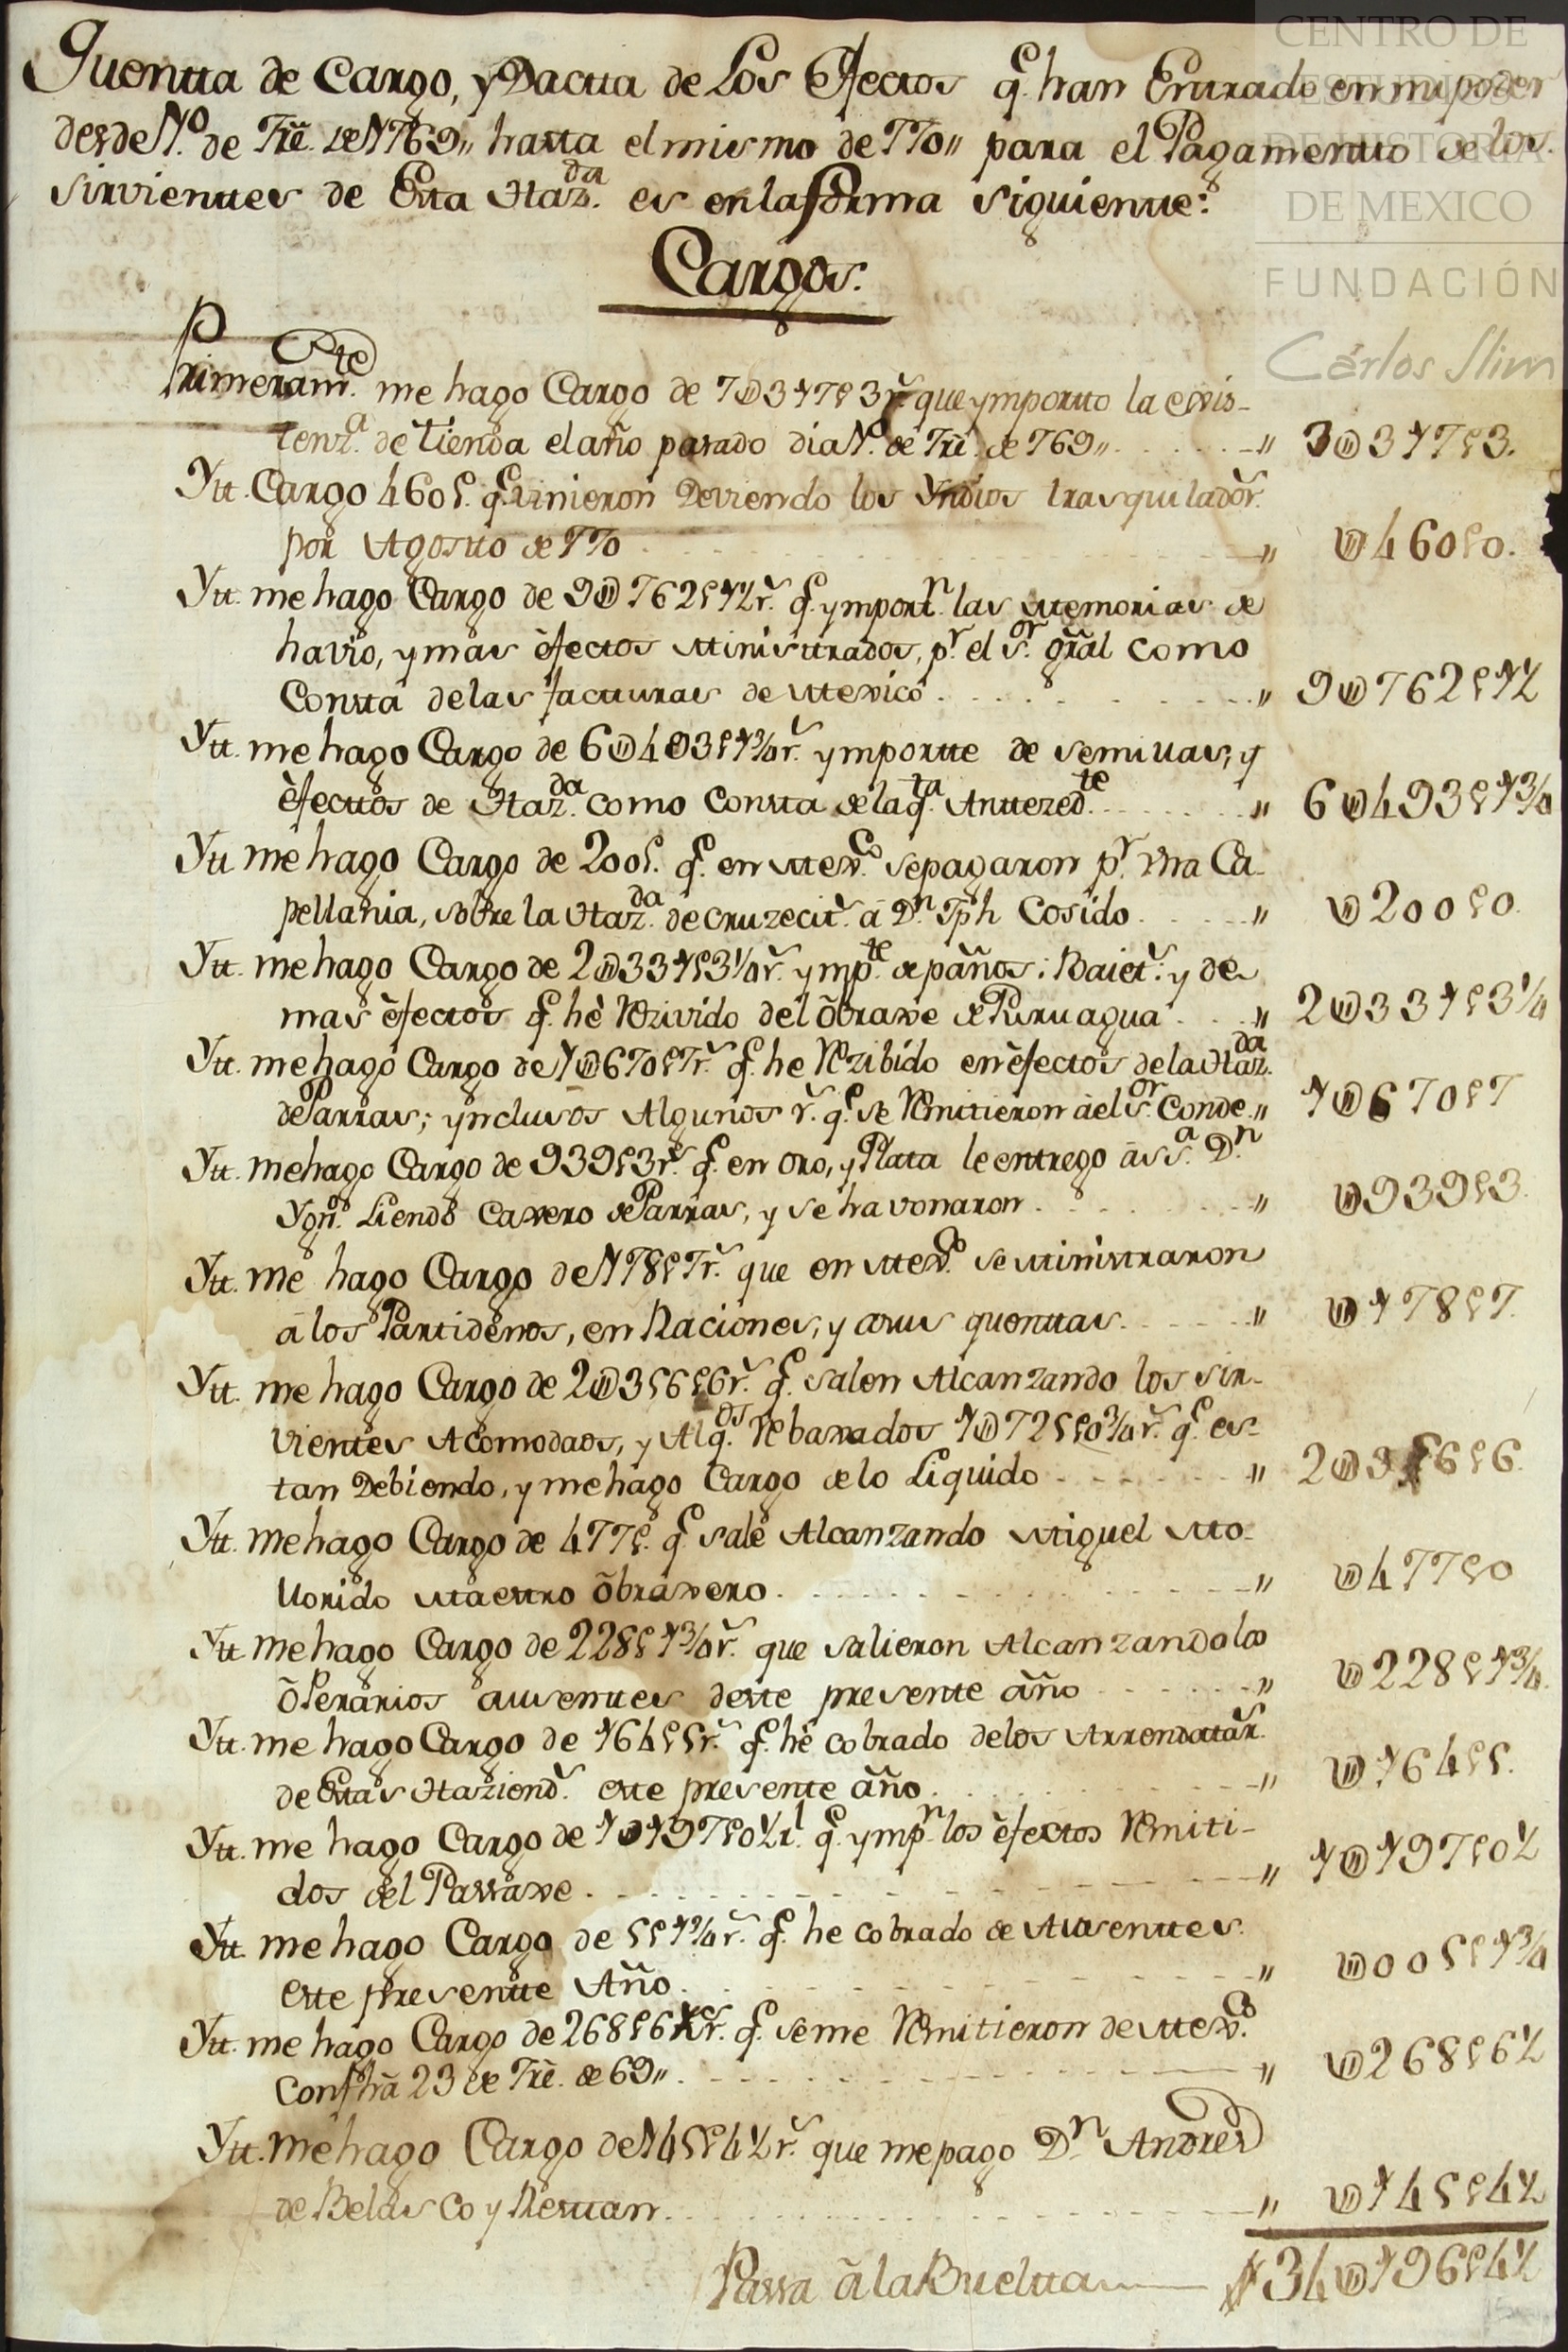 Quentta de Cargo, y Dactta de Los Efectos q.e han Entrado en mi poder
desde 1.o de Fre. de 1769,, hasta el mismo de 770,, para el Pagamentto de los
sirvienttes de Esta Haz.da es en la forma siguientte:
Cargos.
Primeram.te me hago Cargo de 7U317p3r.s que ymportto la exis-
tenz.a de tienda el año pasado dia 1.o de Fre. de 769,, ,, 3U317p3.
Ytt. Cargo 460p. q.e vinieron Deviendo los Yndios trasquilador.s
por Agostto de 770 ,, U460p0.
Ytt. me hago Cargo de 9U762p1½r.s q.e ymport.n las Memorias de
havio, y mas efectos Ministtrados, p.r el S.or gral como
Consta de las facturas de Mexico ,, 9U762p1½
Ytt. me hago Cargo de 6U493p1¾r.s ymportte de semillas, y
efecttos de Haz.da como Consta de la q.ta Antteced.te ,, 6U493p1¾
Ytt me hago Cargo de 200p. q.e en Mex.co se pagaron p.r Una Ca-
pellania, sobre la Haz.da de Cruzecit.s â D.n Jph Cosido ,, U200p0.
Ytt. me hago Cargo de 2U331p3¼r.s ymp.te de paños: Baiet.s y de
mas efectos q.e hè Rezivido del Obraxe de Puruagua ,, 2U331p3¼
Ytt. me hago Cargo de 1U670p7r.s q.e he Rezibido en efectos de la Haz.da
de Parras; ynclusos Algunos r.s q.e se Remitieron âel S.or Conde ,, 1U670p7
Ytt. me hago Cargo de 939p3r.s q.e en oro, y Plata le entrego â S.S.a D.n
Ygn.o Liendo Caxero de Parras, y se havonaron ,, U939p3.
Ytt. me hago Cargo de 178p7r.s que en Mex.co se Ministraron
â los Partideños, en Raciones, y asus quenttas ,, U178p7.
Ytt. me hago Cargo de 2U356p6r.s q.e salen Alcanzando los sir-
vientes Acomodaos, y Alg.os Rebaxados 1U725p0¾r.s q.e es-
tan Debiendo, y me hago Cargo de lo Liquido ,, 2U356p6.
Ytt. me hago Cargo de 477p. q.e sale Alcanzando Miguel Mo-
llorido Maestro Obraxero ,, U477p0
Ytt me hago Cargo de 228p1¾r.s que salieron Alcanzando los
OPerarios ausenttes deste presente año ,, U228p1¾.
Ytt. me hago Cargo de 164p5r.s q.e hè cobrado de los Arrendatar.s
de Estas Haziend.s este presente año ,, U164p5.
Ytt. me hago Cargo de 1U197p0½r.l q.e ymp.n los efectos Remiti-
dos del Parraxe ,, 1U197p0½
Ytt. me hago Cargo de 5p1¾r.s q.e he cobrado de Ausenttes.
este presentte Año ,, U005p1¾
Ytt. me hago Cargo de 268p6½r.s q.e se me Remitieron de Mex.co
Con fha 23 de Fre. de 69,, ,, U268p6½
Ytt. me hago Cargo de 145p4½r.s que me pago D.n Andres
de Belasco y Resttan ,, U145p4½
Passa â la Buelta $34U196p4½